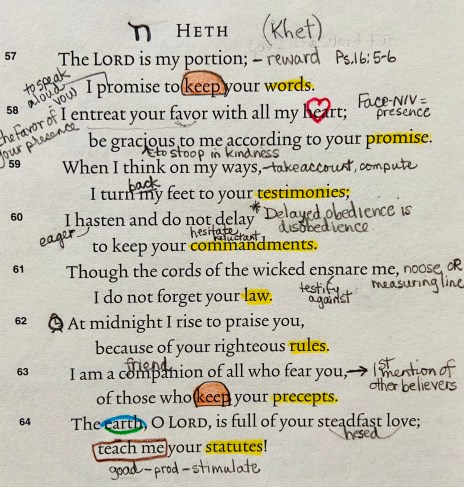 ח HETH (Khet)
57 The LORD is my portion; – reward Ps. 16:5-6
to speak aloud vow
I promise to keep your words.
58 I entreat your favor with all my heart; Face-NIV = presence
the favor of your presence
be gracious to me according to your promise.
to stoop in kindness
59 When I think on my ways, – take account, compute
back
I turn my feet to your testimonies;
60 I hasten and do not delay * Delayed obedience is disobedience.
eager hesitate reluctant
to keep your commandments.
61 Though the cords of the wicked ensnare me, noose OR measuring line
I do not forget your law. testify against
62 At midnight I rise to praise you,
because of your righteous rules.
friend
63 I am a companion of all who fear you, → 1st mention of other believers
of those who keep your precepts.
64 The earth, O LORD, is full of your steadfast love;
hesed
teach me your statutes!
goad – prod – stimulate